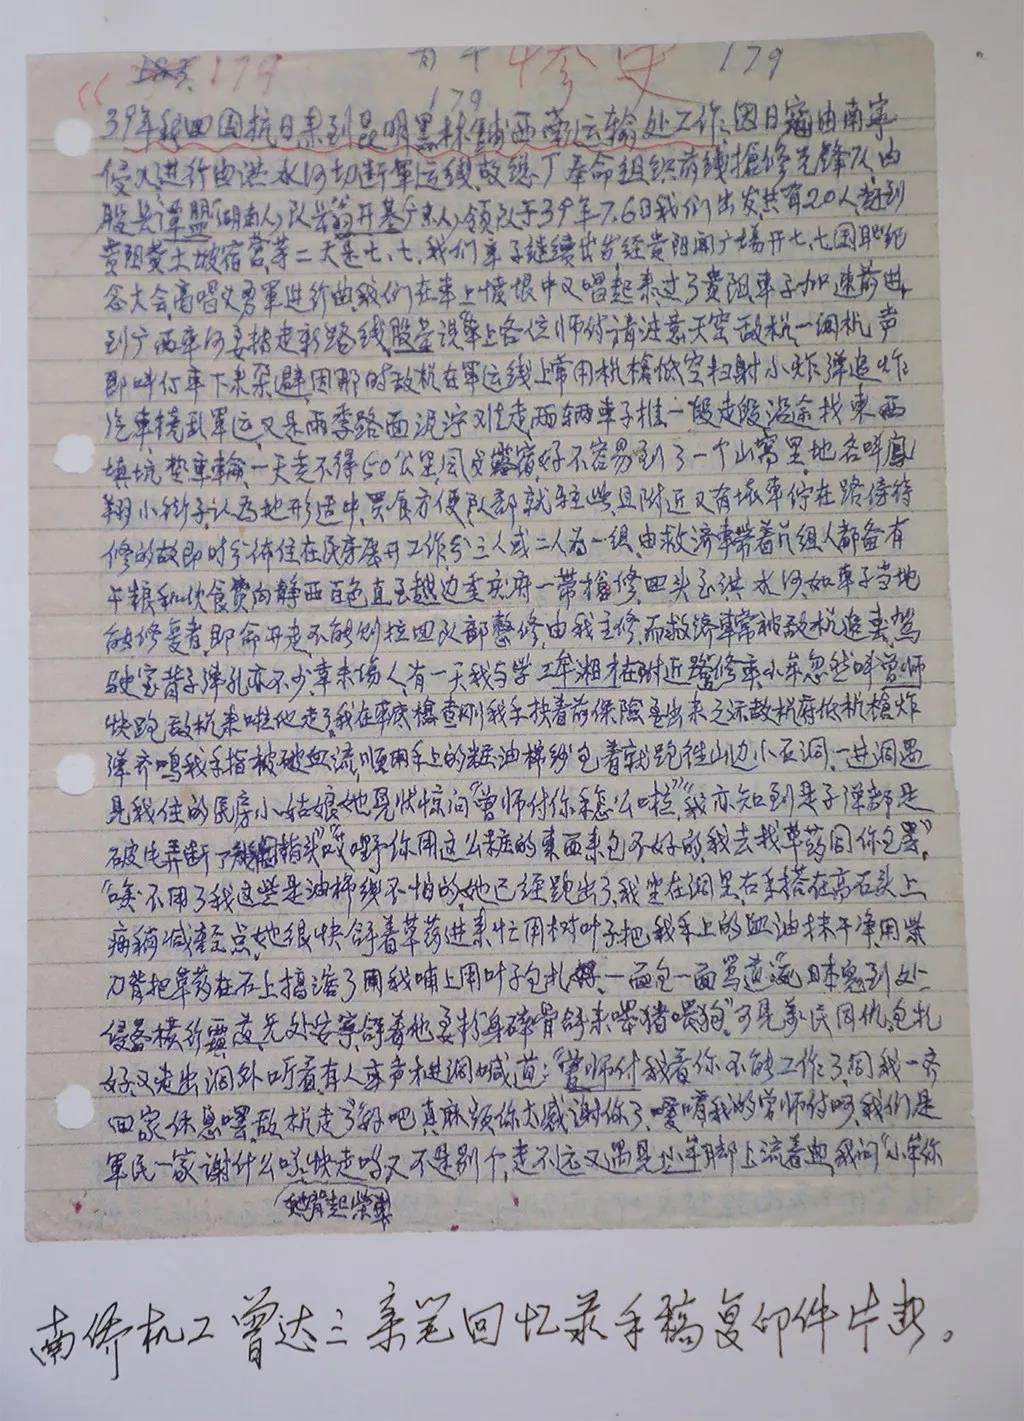 179 惨史 179
179
39年我回国抗日来到昆明黑林铺西南运输处工作,因日寇由南宁
侵入进行由洪水河切断军运线,故总厂奉命组织前线抢修先锋队,由
股长谭盟(湖南人)队长翁开基(广东人)领队于39年7.6日我们出发,共有20人,赶到
贵阳黄土坡宿营,第二天是七、七,我们车子继续出发经贵阳闻广场开七、七国耻纪
念大会,高唱义勇军进行曲,我们在车上愤恨中又唱起来,过了贵阳车子加速前进,
到广西车河要转走新路线,股长说"车上各位师付请注意天空敌机一闻机声
即叫停车下来躲避,因那时敌机在军运线上常用机枪低空扫射小炸弹追炸
汽车扰乱军运,又是雨季路面泥泞难走,两辆车子推一段走段,沿途找东西
填坑垫车轮,一天走不得50公里,好不容易到了一个山窝里,地名叫凤
翔小街子,认为地形适中,买食方便,队部就驻些,且附近又有坏车停在路傍待
修的,故即时分佈住在民房展开工作,分三人或二人为一组,由救济车带着,组人都备有
干粮和饮食费向静西百色直至越边重庆府一带抢修,回头至洪水河,如车子当地
能修复者,即命开走,不能则拉回队部整修,由我主修,而救济车常被敌机追袭,驾
驶室背子弹孔亦不少,幸未伤人,有一天我与学工牟湘才在附近路修车,小牟忽然叫曾师
快跑,敌机来啦,他走了,我在车底检查刚我手扶着前保险要出来之际敌机府低机枪炸
弹齐鸣,我手指被破血流,顺用手上的油棉纱包着就跑往山边小石洞,一进洞遇
见我住的民房小姑娘,她见状惊问"曾师付你手怎么啦""我亦知到是子弹部是
破片弄断了指头""哎嘢你用这么赃的东西来包不好的,我去找草药同你包罢"
"唉不用了我这些是油棉线不怕的,她已经跑出了,我坐在洞里右手搭在高石头上
痛稍减轻点,她很快拿着草药进来,忙用树叶子把我手上的血油抹干净,用柴
刀背把草药在石上捣溶了同我哺上用叶子包扎好,一面包一面骂道,日本鬼到处
侵略横行霸道,无处安寧,拿着他要粉身碎骨拿来喂猪喂狗",可见万民同仇,包扎
好又走出洞外听着有人车声未进洞喊道:"曾师付我看你不能工作了,同我一齐
回家休息罢,敌机走了""好吧真麻烦你太感谢你了,嗳唷我的曾师付呵,我们是
军民一家谢什么呀,快走吗,又不是别个,走不远又遇见小牟脚上流着血,我问"小牟你
她背起柴
南侨机工曾达三亲笔回忆录手稿复印件片断。